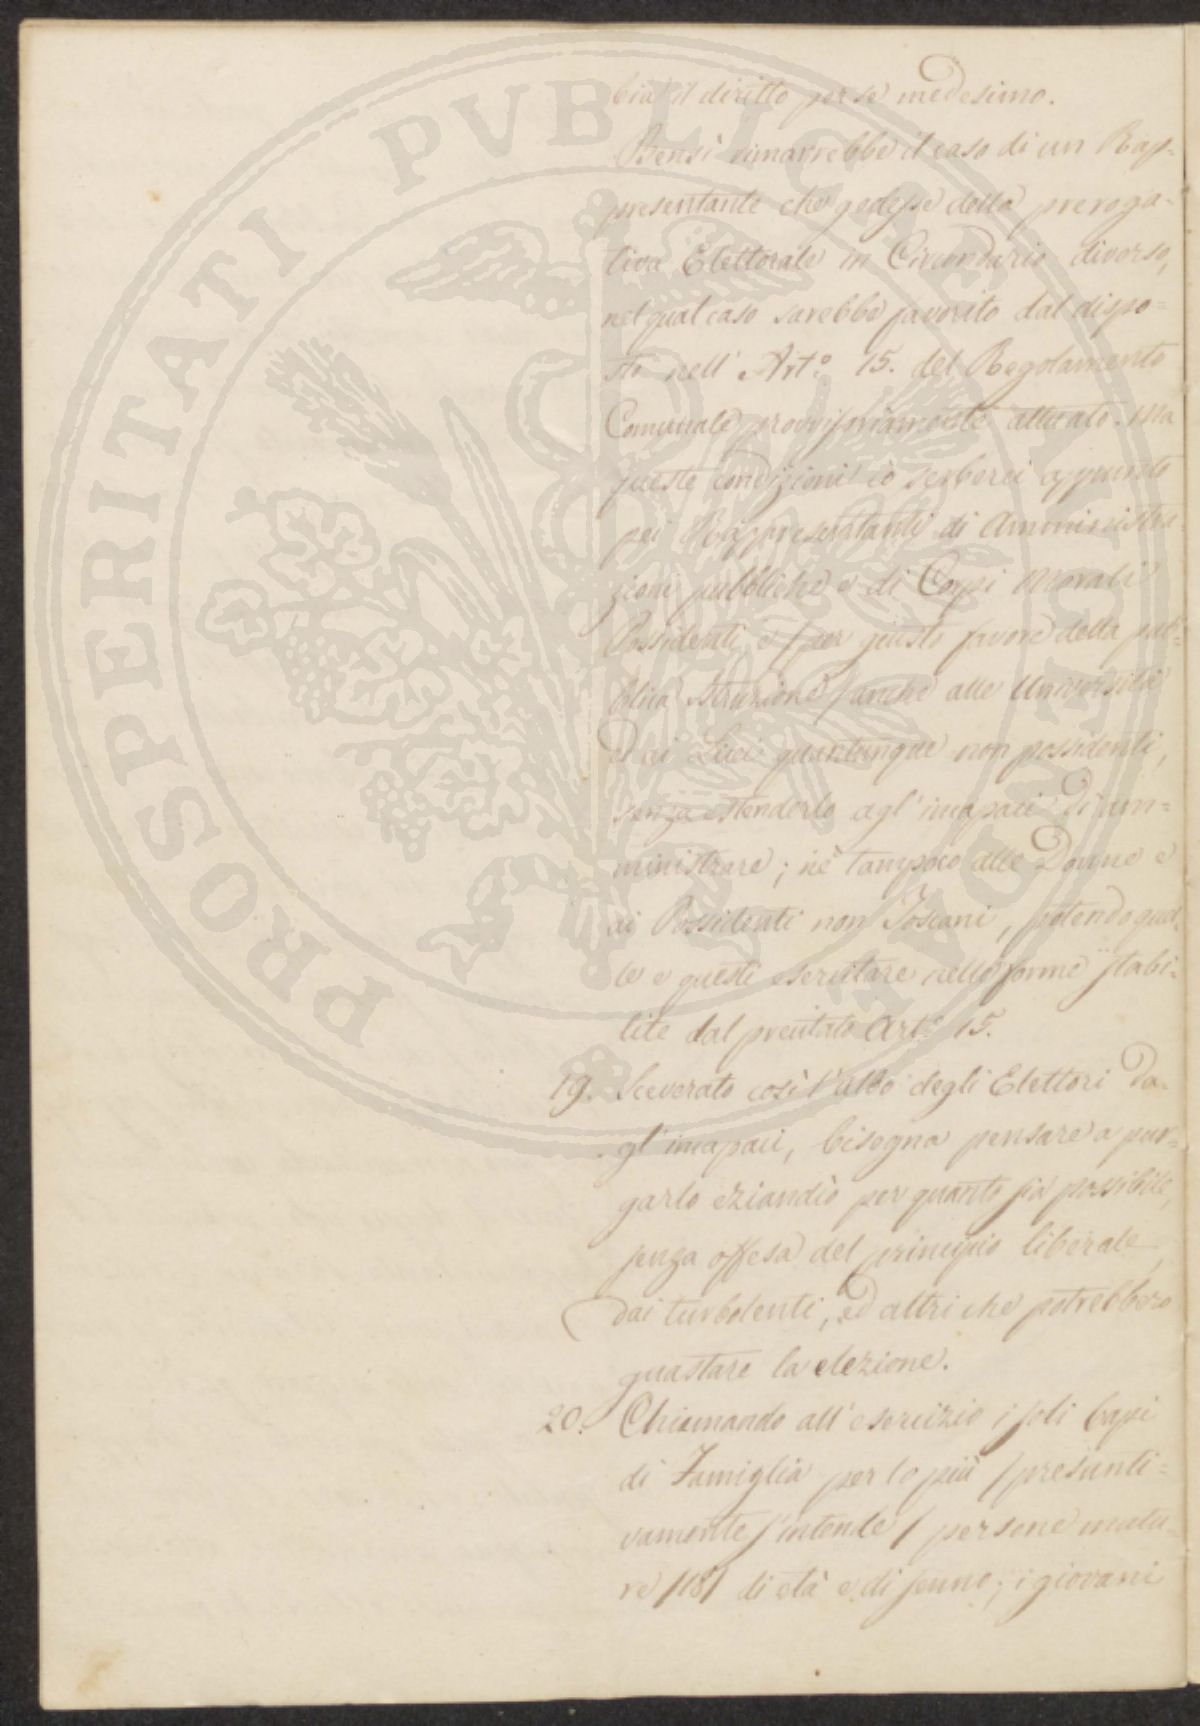 bia il diritto per se medesimo.
Bensì rimarrebbe il caso di un Rap-
presentante che godesse della preroga-
tiva Elettorale in Circondario diverso,
nel qual caso sarebbe favorito dal dispo-
sto nell' Art.° 15. del Regolamento
Comunale provvisoriamente attuato. Ma
queste condizioni io serberei appunto
pei Rappresentanti di Amministra-
zioni pubbliche e di Corpi Morali
Possidenti, e /per giusto favore della pub-
blica Istruzione/ anche alle Università
ed ai Licei quantunque non possidenti,
senza estenderlo agl' incapaci di am-
ministrare; nè tampoco alle Donne e
ai Possidenti non Toscani, potendo quel-
le e questi esercitare nelle forme stabi-
lite dal precitato Art.° 15.
19. Sceverato così l'albo degli Elettori da-
gl' incapaci, bisogna pensare a pur-
garlo eziandio per quanto sia possibile,
senza offesa del principio liberale,
dai turbolenti, ed altri che potrebbero
guastare la elezione.
20. Chiamando all' esercizio i soli Capi
di Famiglia per lo più /presunti-
vamente s'intende/ persone matu-
re /18/ di età e di senno; i giovani
PROSPERITATI PUBLICAE AUGENDAE